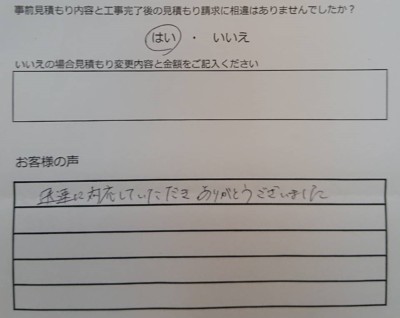 事前見積もり内容と工事完了後の見積もり請求に相違はありませんでしたか？
はい ・ いいえ
いいえの場合見積もり変更内容と金額をご記入ください
お客様の声
迅速に対応していただきありがとうございました